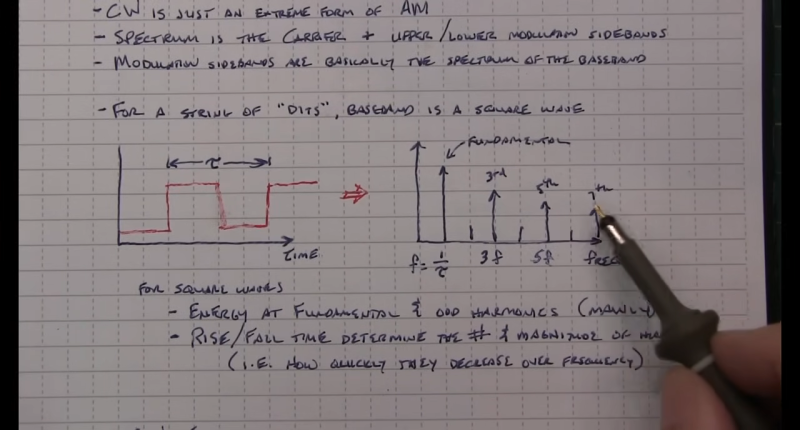 - CW IS JUST AN EXTREME FORM OF AM
- SPECTRUM IS THE CARRIER + UPPER/LOWER MODULATION SIDEBANDS
- MODULATION SIDEBANDS ARE BASICALLY THE SPECTRUM OF THE BASEBAND
- FOR A STRING OF "DITS", BASEBAND IS A SQUARE WAVE
τ
TIME
FUNDAMENTAL
3rd
5th
7th
f = 1/τ
3f
5f
FREQ
FOR SQUARE WAVES
- ENERGY AT FUNDAMENTAL & ODD HARMONICS (MAINLY
- RISE/FALL TIME DETERMINE THE # & MAGNITUDE OF
(I.E. HOW QUICKLY THEY DECREASE OVER FREQUENCY)